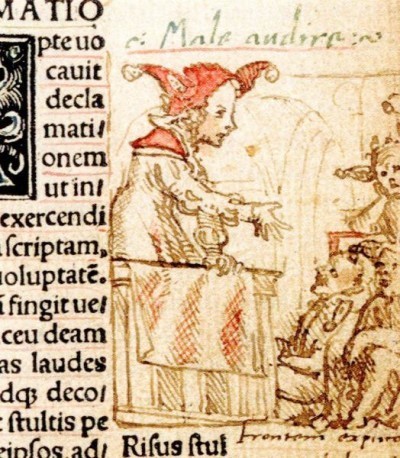 MATIO
Male audire
pte uò
cauit
decla
mati/
onem
ut in/
exercendi
scriptam,
uoluptatē.
fingit ue/
ceu deam
as laudes
dq; deco/
t stultis pe
eipsos, ad/
Risus stul
frontem